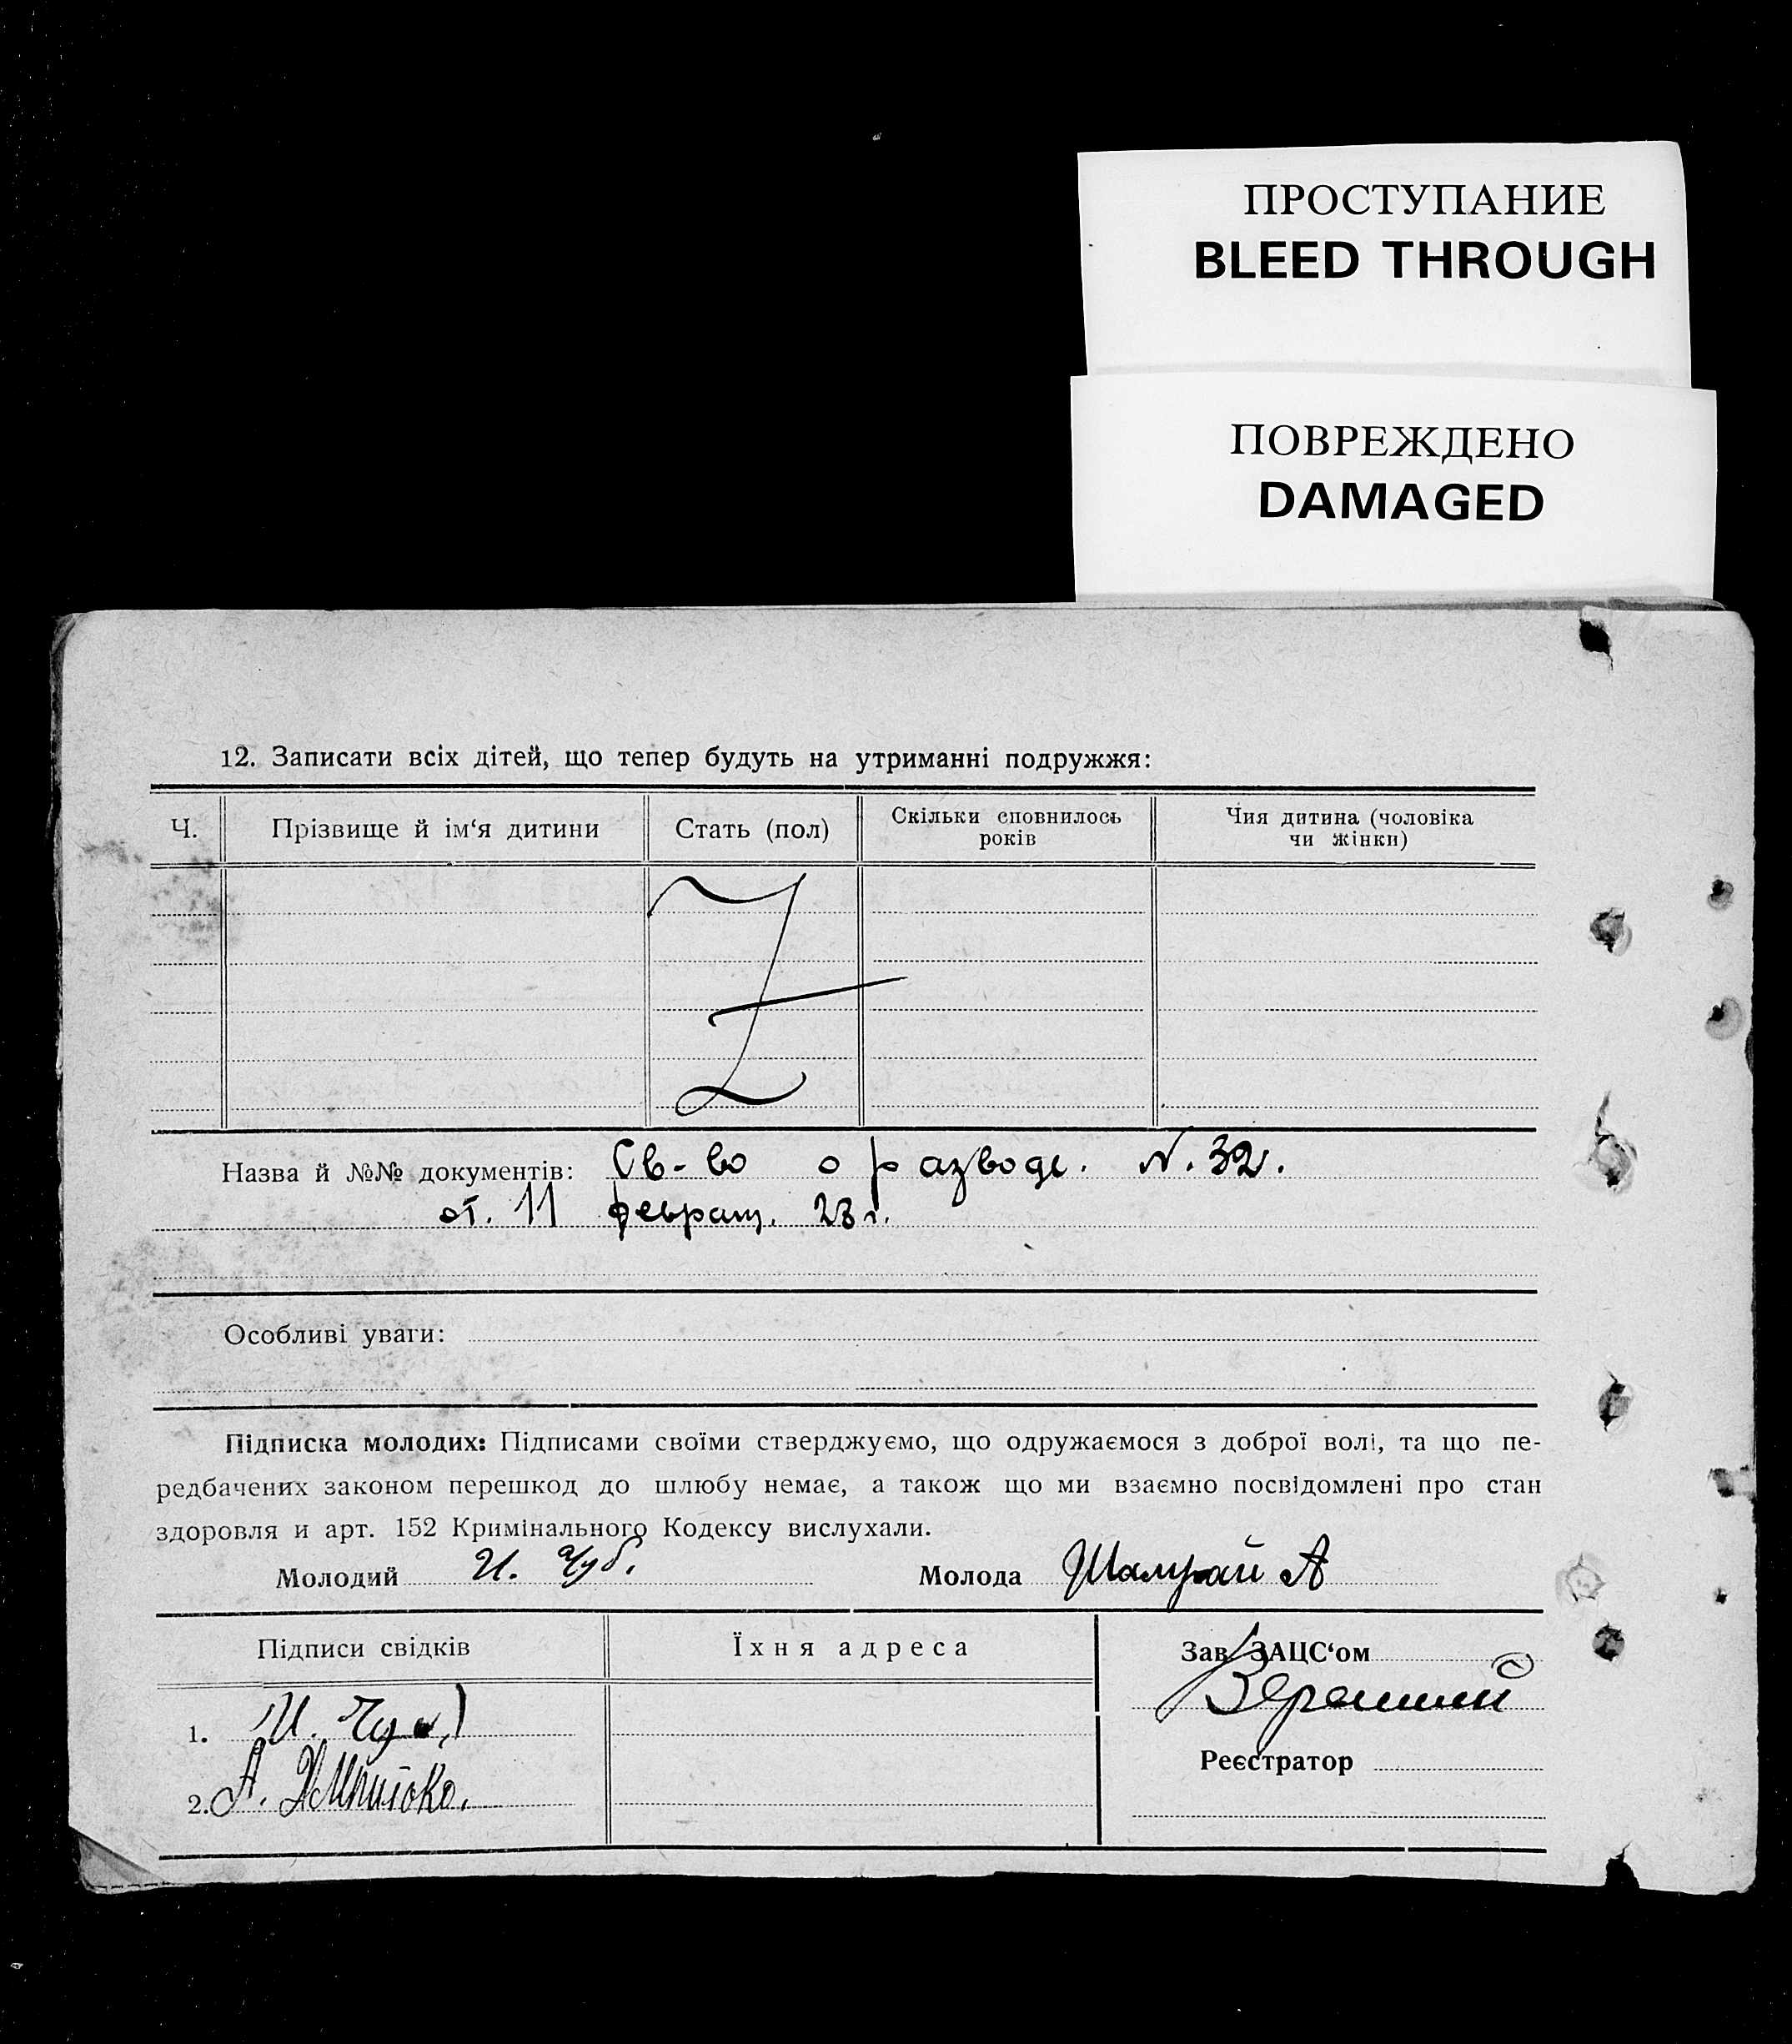 ПРОСТУПАНИЕ
BLEED THROUGH
ПОВРЕЖДЕНО
DAMAGED
12. Записати всіх дітей, що тепер будуть на утриманні подружжя:
Ч.
Прізвище й ім‘я дитини
Стать (пол)
Скільки сповнилось
років
Чия дитина (чоловіка
чи жінки)
Назва й №№ документів: Св-во о разводе. N. 32.
от. 11 феврал. 23 г.
Особливі уваги:
Підписка молодих: Підписами своїми стверджуємо, що одружаємося з доброї волі, та що пе-
редбачених законом перешкод до шлюбу немає, а також що ми взаємно посвідомлені про стан
здоровля и арт. 152 Кримінального Кодексу вислухали.
Молодий И. Чуб. Молода Шамрай А
Підписи свідків
Їхня адреса
Зав ЗАЦС‘ом
1. И.
Реєстратор
2. А.